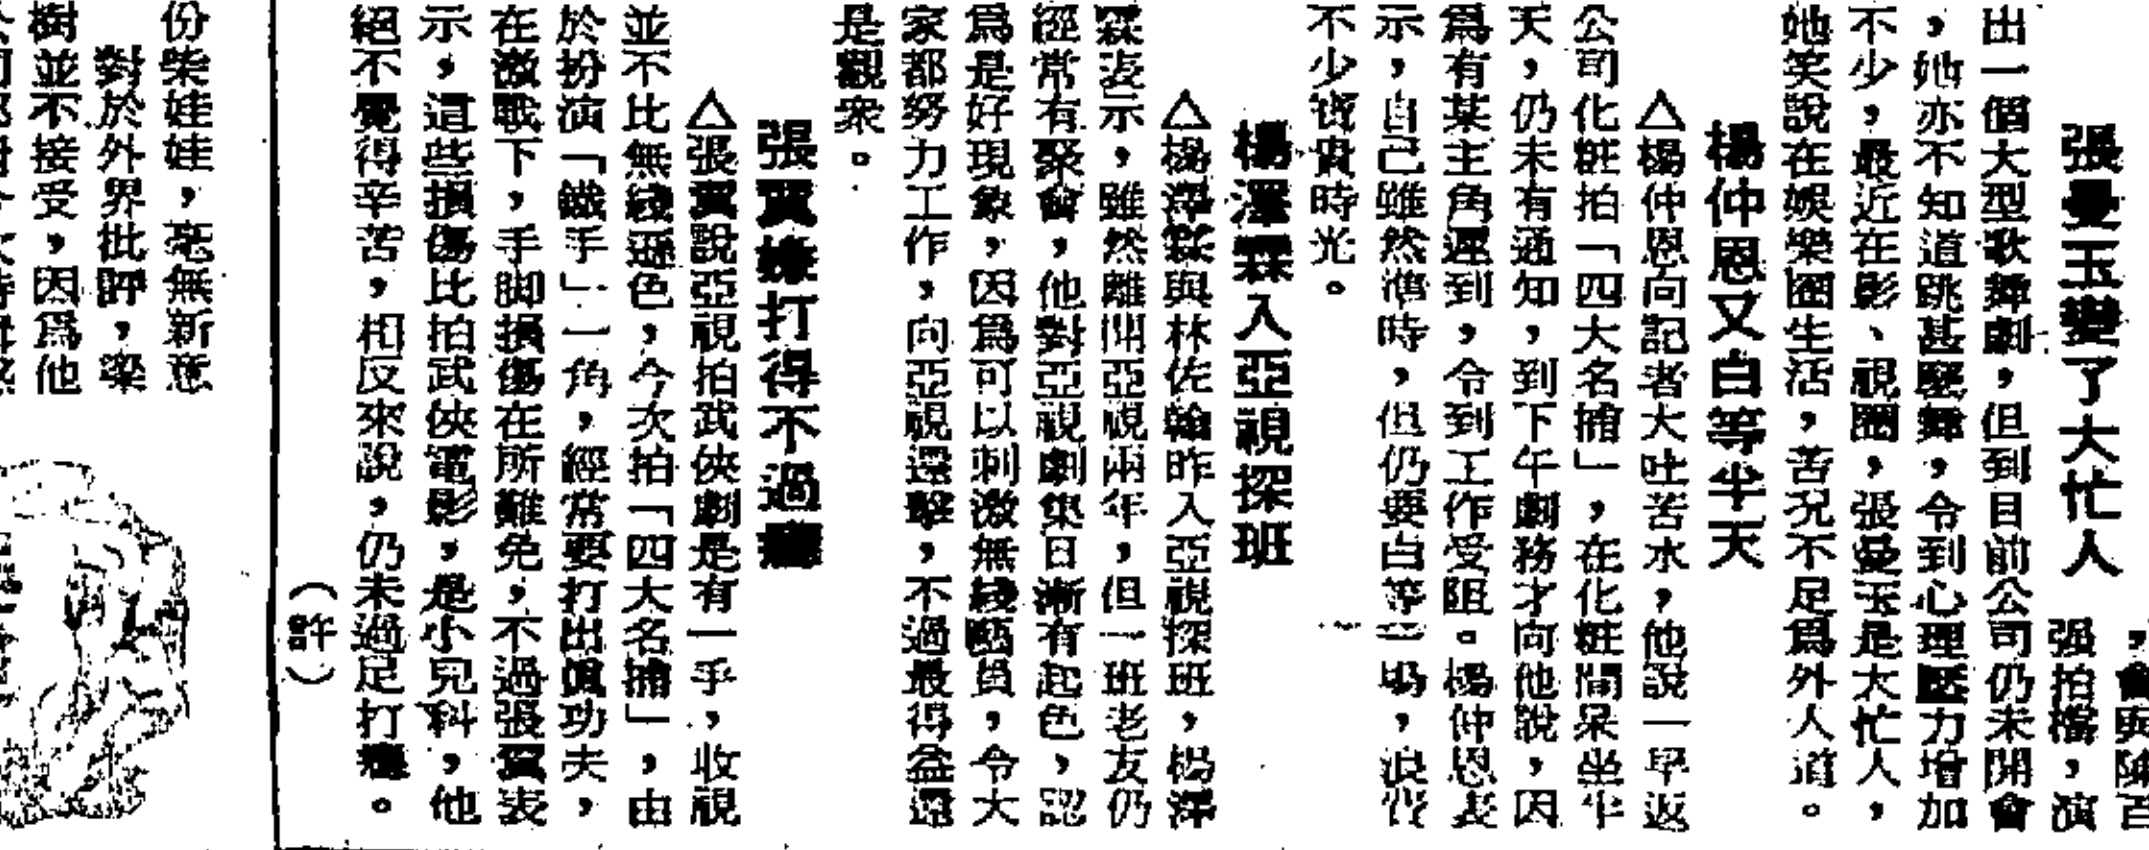 ，會與陳百
强拍檔，演
張曼玉變了大忙人
出一個大型歌舞劇，但到目前公司仍未開會
，她亦不知道跳甚麼舞，令到心理壓力增加
不少，最近在影、視圈，張曼玉是大忙人，
她笑說在娛樂圈生活，苦況不足爲外人道。
楊仲恩又白等半天
△楊仲恩向記者大吐苦水，他說一早返
公司化粧拍「四大名捕」，在化粧間呆坐半
天，仍未有通知，到下午劇務才向他說，因
爲有某主角遲到，令到工作受阻。楊仲恩表
示，自己雖然準時，但仍要白等一場，浪費
不少寶貴時光。
楊澤霖入亞視探班
△楊澤霖與林佐翰昨入亞視探班，楊澤
霖表示，雖然離開亞視兩年，但一班老友仍
經常有聚會，他對亞視劇集日漸有起色，認
爲是好現象，因爲可以刺激無綫藝員，令大
家都努力工作，向亞視還擊，不過最得益還
是觀衆。
張翼嫌打得不過癮
△張翼說亞視拍武俠劇是有一手，收視
並不比無綫遜色，今次拍「四大名捕」，由
於扮演「鐵手」一角，經常要打出眞功夫，
在激戰下，手脚損傷在所難免，不過張翼表
示，這些損傷比拍武俠電影，是小兒科，他
絕不覺得辛苦，相反來說，仍未過足打癮。
（許）
份柴娃娃，毫無新意
對於外界批評，梁
樹並不接受，因爲他